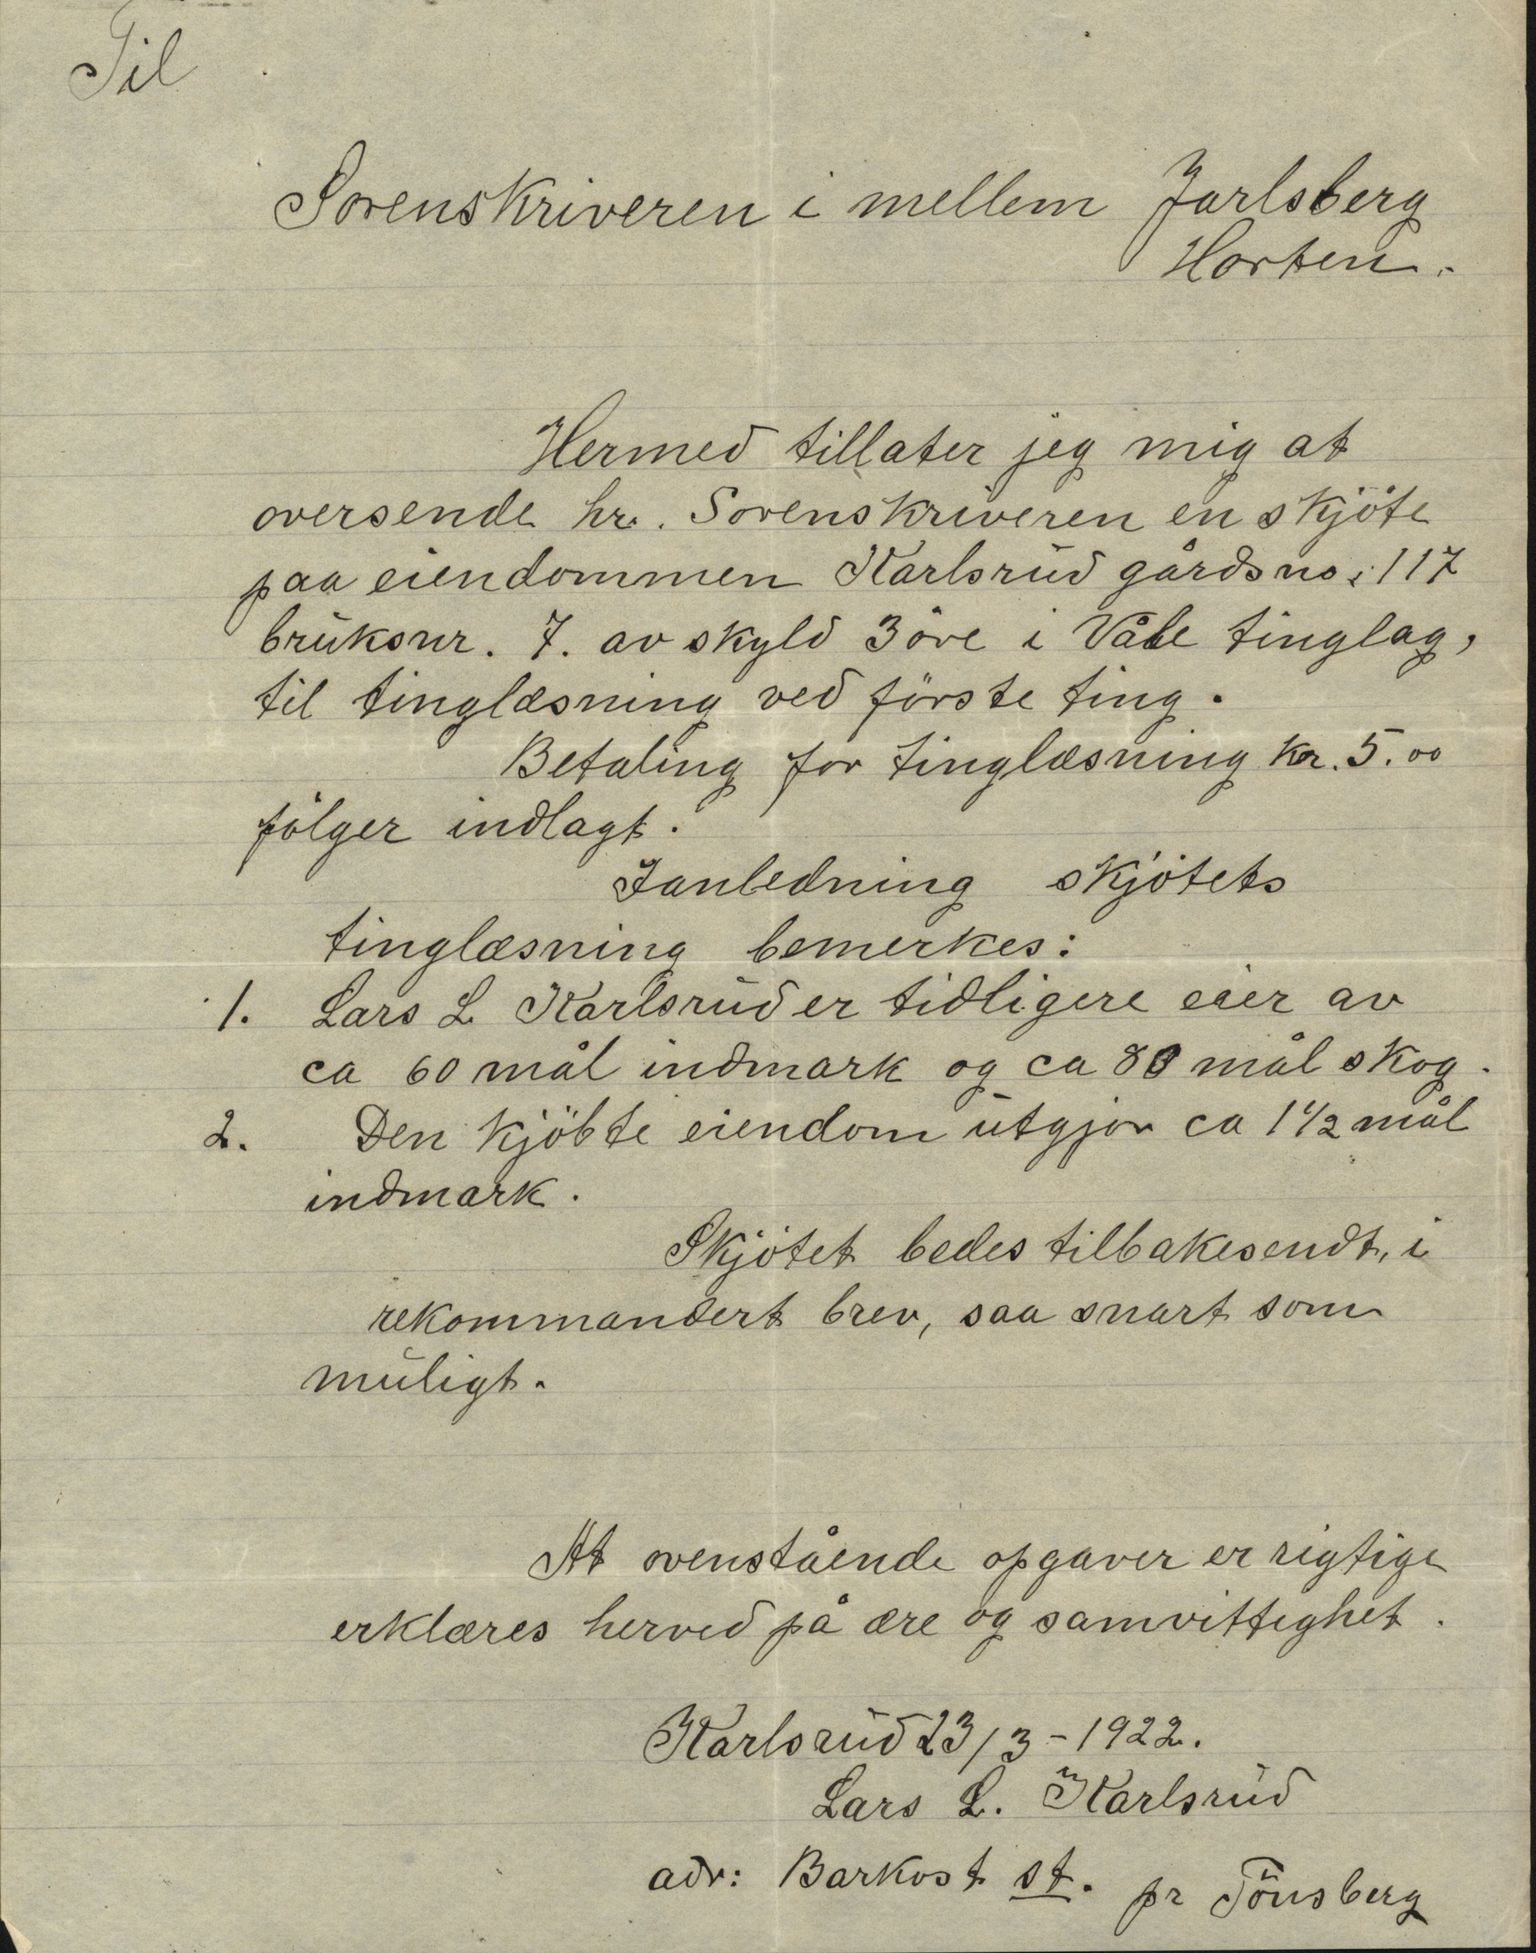 Til
Sorenskriveren i mellem Jarlsberg
Horten.
Hermed tillater jeg mig at
oversende hr. Sorenskriveren en skjöte
paa eiendommen Karlsrud gårdsno: 117
bruksnr. 7. av skyld 3 öre i Våle tinglag,
til tinglæsning ved förste ting.
Betaling for tinglæsning kr. 5.00
fölger indlagt.
Ianledning skjötets
tinglæsning bemerkes:
1. Lars L. Karlsrud er tidligere eier av
ca 60 mål indmark og ca 80 mål skog.
2. Den kjöbte eiendom utgjör ca 1 1/2 mål
indmark.
Skjötet bedes tilbakesendt, i
rekommandert brev, saa snart som
muligt.
At ovenstående opgaver er rigtige
erklæres herved på ære og samvittighet.
Karlsrud 23/3-1922.
Lars L. Karlsrud
adr: Barkost st. pr Tönsberg